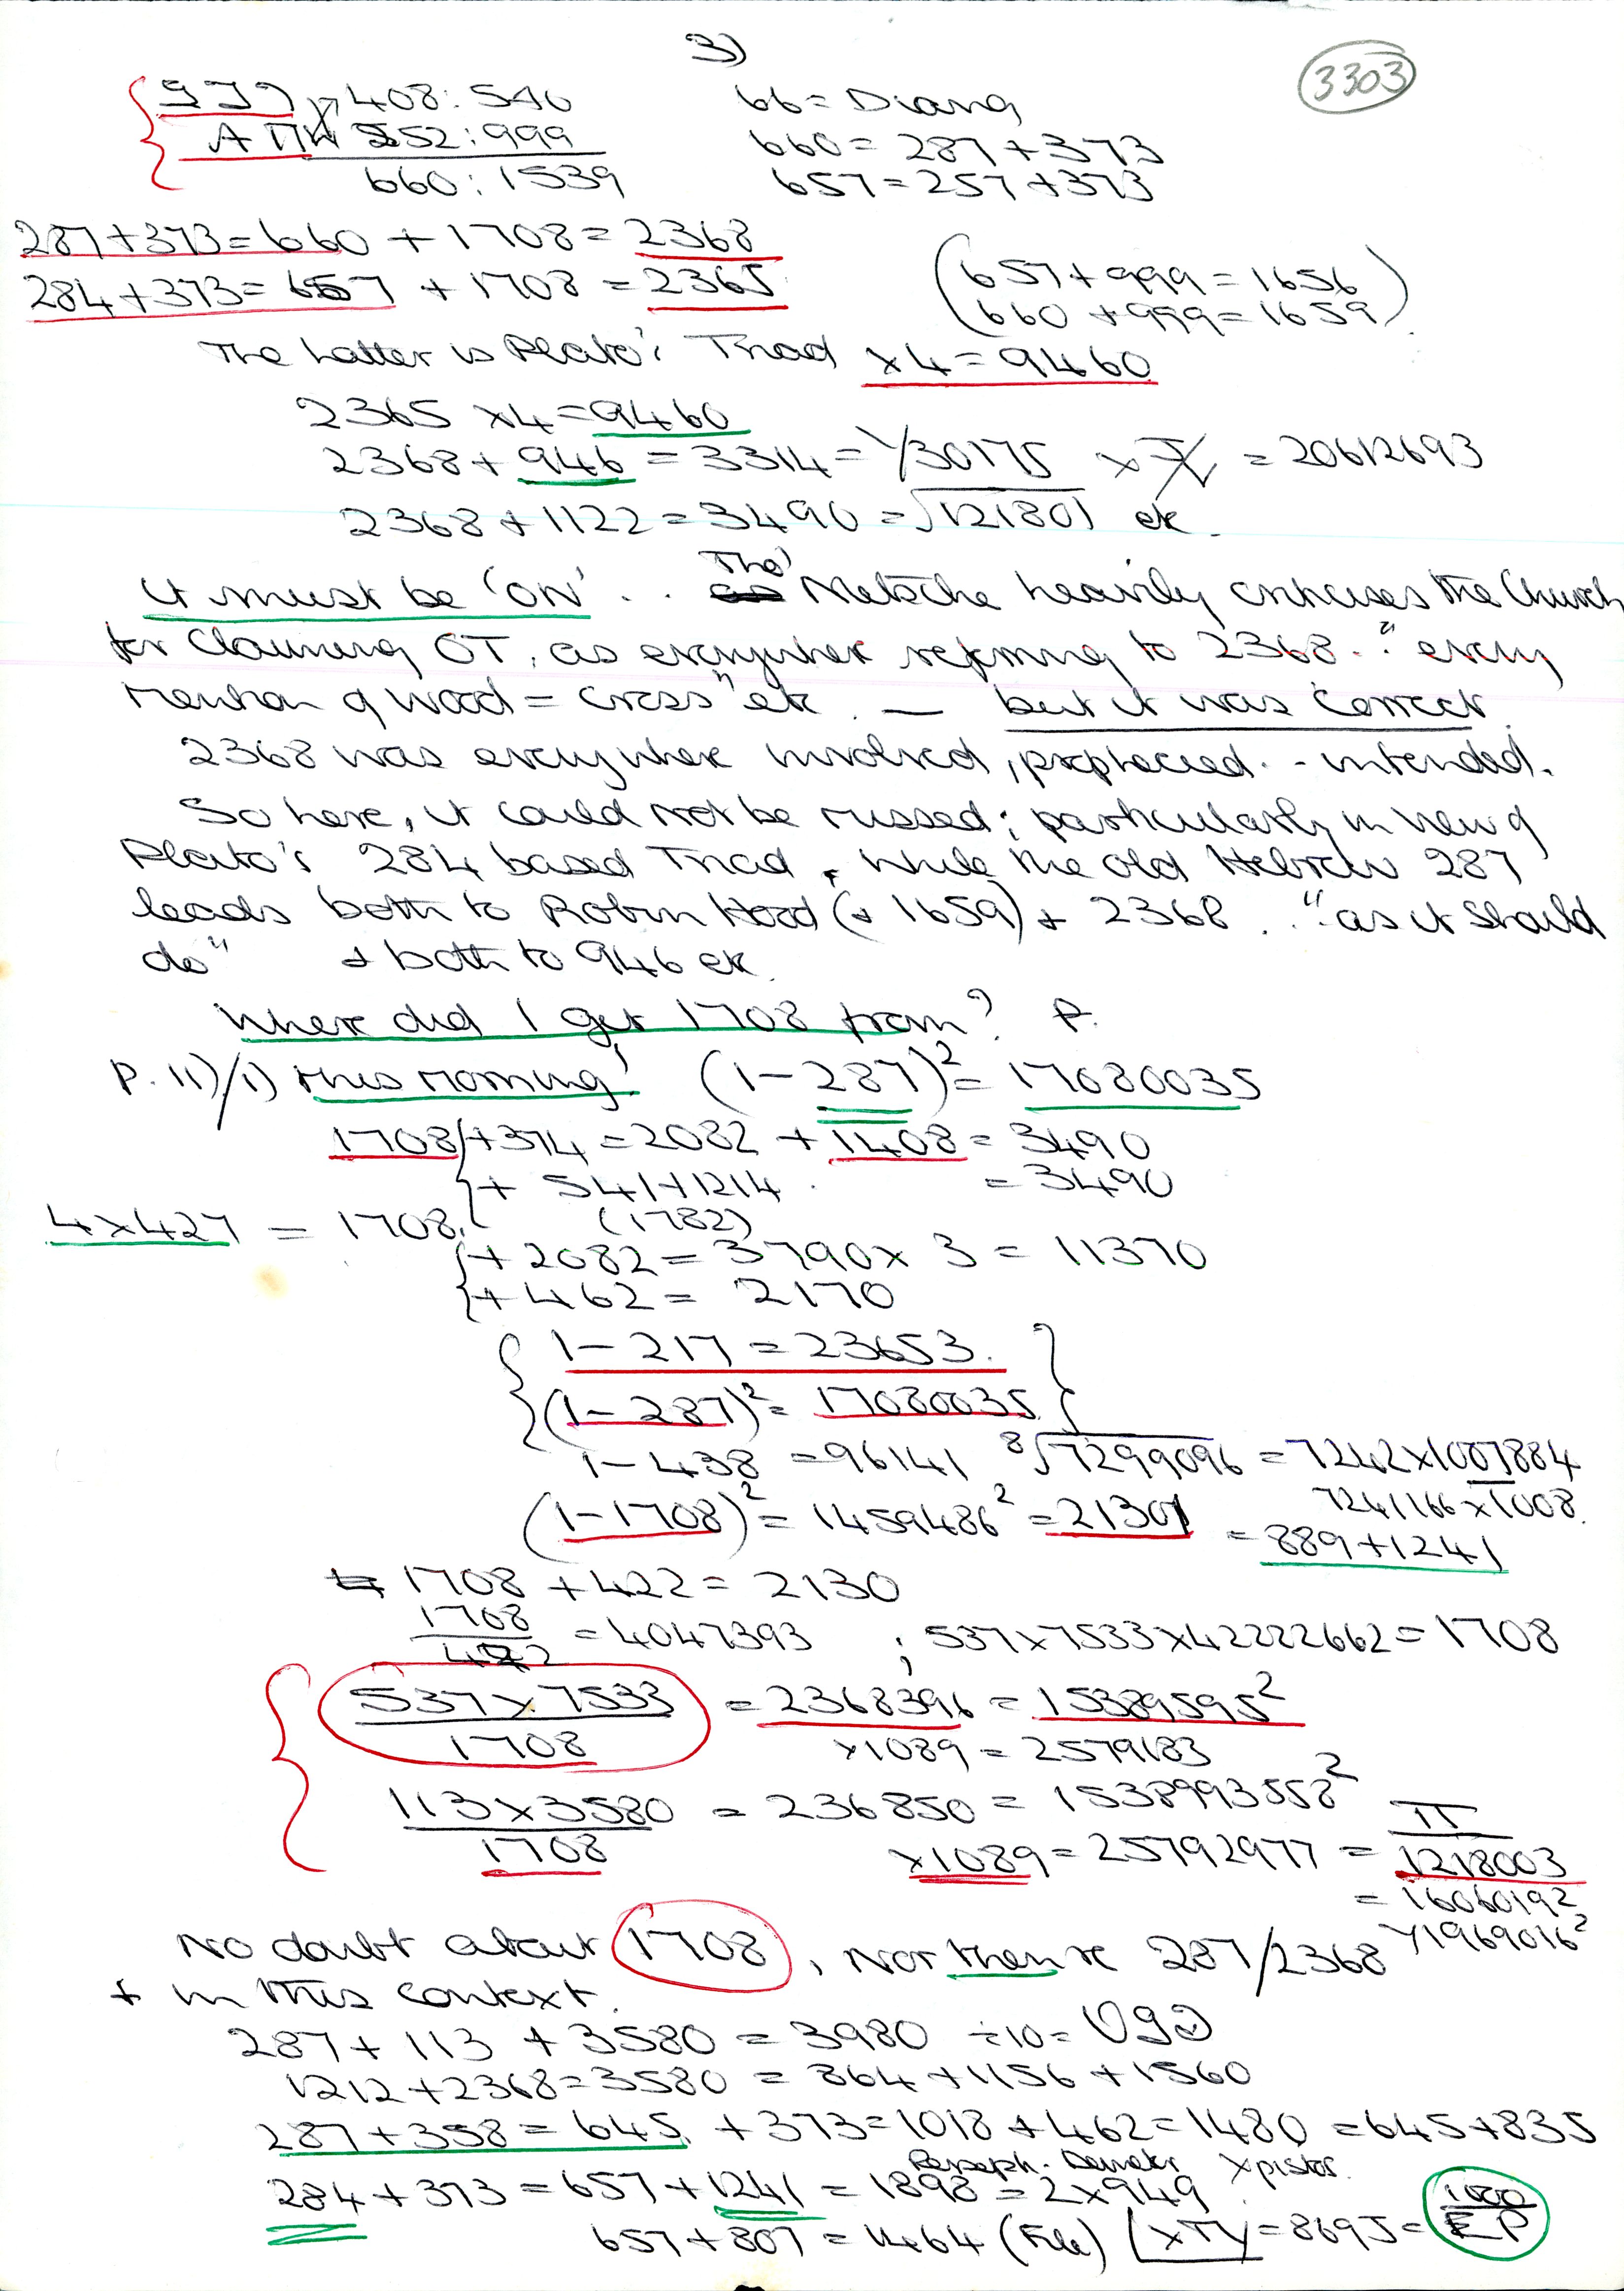 3)
3303
408:540
552:999
660:1539
66 = Diana
660 = 287+373
657 = 257+373
287+373=660 + 1708 = 2368
284+373=657 + 1708 = 2365
(657+999 = 1656
660 +999 = 1659)
The latter is Plato's Triad x4 = 9460
2365 x4 = 9460
2368 + 946 = 3314 = 1/30175 x = 20612693
2368 + 1122 = 3490 = √121801 etc.
It must be 'ON'. . Tho' Nietsche heavily criticises the Church
for claiming OT, as everywhere referring to 2368. . "every
mention of wood = cross" etc. — but it was correct.
2368 was everywhere involved, prophecied. - intended.
So here, it could not be missed; particularly in view of
Plato's 284 based Triad, while the old Hebrew 287
leads both to Robin Hood (+ 1659) + 2368. . "as it should
do" + both to 946 etc.
Where did I get 1708 from? P.
P. 11)/1) this morning! (1-287)² = 17080035
1708 +374 = 2082 + 1408 = 3490
+ 541+1214 = 3490
4x427 = 1708. (1782)
+ 2082 = 3790 x 3 = 11370
+ 462 = 2170
1-217 = 23653.
(1-287)² = 17080035
1-438 = 96141 8√7299096 = 7242x1007884
(1-1708)² = 1459486² = 21301 7241166x1008.
= 889+1241
1708 +422 = 2130
1708/422 = 4047393 ; 537x7533x42222662 = 1708
537x7533/1708 = 2368396 = 15389595²
x1089 = 2579183
113x3580/1708 = 236850 = 1538993558²
x1089 = 25792977 = π/1218003
= 16060192
No doubt about 1708, nor then re 287/2368 1/1969016²
+ in this context.
287 + 113 + 3580 = 3980 ÷10 =
1212+2368=3580 = 864+1156+1560
287+358 = 645, +373=1018 +462=1480 = 645+835
Perseph. Demeter Χριστος.
284+373 = 657+1241 = 1898 = 2x949
657+807 = 1464 (File) [xTy = 8695 =